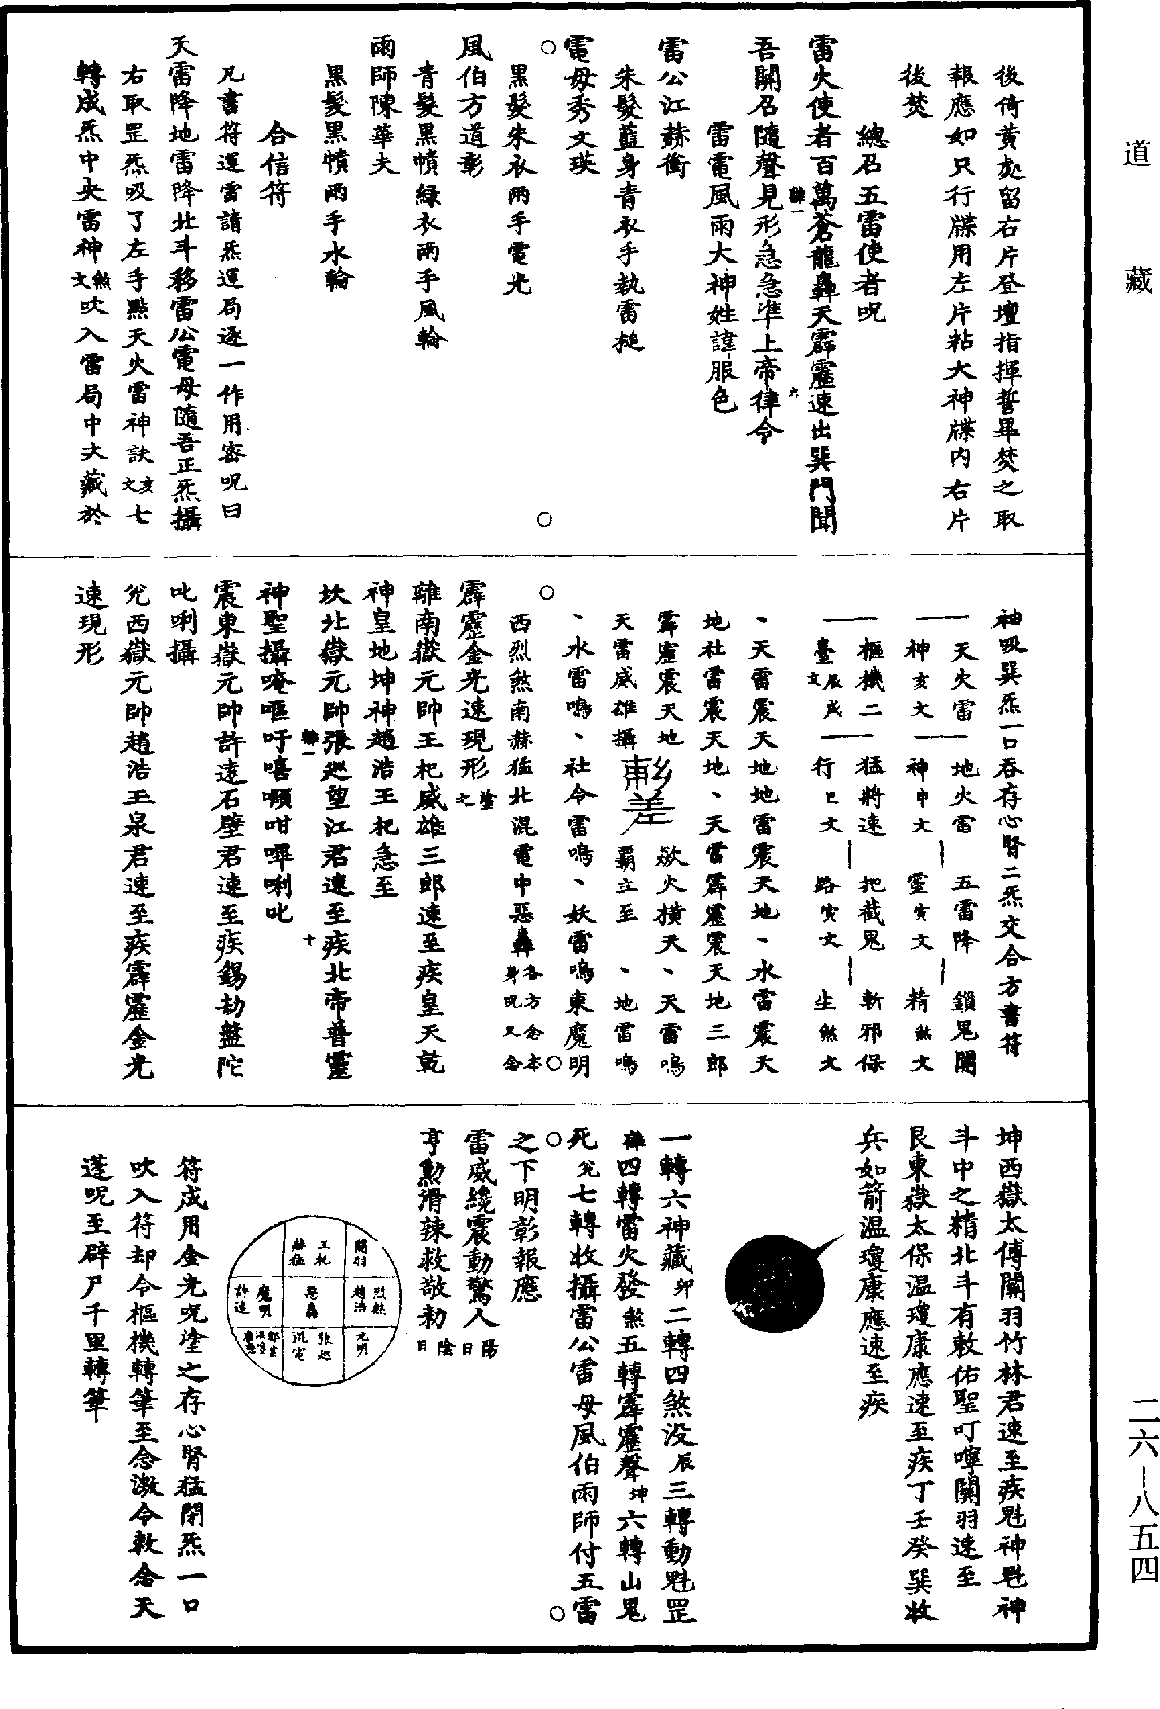 道藏
後倚黃處留右片登壇指揮誓畢焚之取
報應如只行牒用左片粘大神牒內右片
後焚
總召五雷使者呪
雷火使者百萬蒼龍轟天霹靂速出巽門聞
吾關召隨聲見形急急準上帝律令
雷電風雨大神姓諱服色
雷公江赫衝
朱髮藍身青衣手執雷槌
電母秀文瑛
黑髮朱衣兩手電光
風伯方道彰
青髮黑幘綠衣兩手風輪
雨師陳華夫
黑髮黑幘兩手水輪
合信符
凡書符運雷請炁運局逐一作用密呪曰
天雷降地雷降北斗移雷公電母隨吾正炁攝
右取罡炁吸了左手點天火雷神訣亥文七
轉成炁中央雷神煞文吹入雷局中大藏於
袖吸巽炁一口吞存心腎二炁交合方書符
一天火雷 一地火雷 五雷降 鎖鬼關
神亥文 神申文 靈寅文 精煞文
樞機二 猛將速 把截鬼 斬邪保
臺辰文戌 行巳文 路寅文 生煞文
、天雷震天地地雷震天地、水雷震天
地社雷震天地、天雷霹靂震天地三郎
霹靂震天地 歘火橫天、天雷鳴
天雷威雄攝 霸立至 、地雷鳴
、水雷鳴、社令雷鳴、妖雷鳴東魔明
西烈煞南赫猛北混電中惡轟各方念本身呪又念
霹靂金光速現形塗之
離南嶽元帥王杞威雄三郎速至疾皇天乾
神皇地坤神趙浩王杞急至
坎北嶽元帥張巡望江君速至疾北帝普靈
神聖攝唵嘔吁嘻嚬咁嗶唎叱
震東嶽元帥許遠石壁君速至疾錫劫盤陀
叱唎攝
兊西嶽元帥趙浩王泉君速至疾霹靂金光
速現形
坤西嶽太傅關羽竹林君速至疾魁神魁神
斗中之精北斗有敕佑聖叮嚀關羽速至
艮東嶽太保溫瓊康應速至疾丁壬癸巽收
兵如箭溫瓊康應速至疾
一轉六神藏卯二轉四煞沒辰三轉動魁罡
離四轉雷火發煞五轉霹靂聲坤六轉山鬼
死兊七轉收攝雷公雷母風伯雨師付五雷
之下明彰報應
雷威纔震動驚人陽日
亨勳滑辣救敬勑陰日
關羽 王杞 赫猛
烈煞 趙浩 惡轟 魔明 許遠
元明 張巡 混電
符成用金光呪塗之存心腎猛閉炁一口
吹入符却令樞機轉筆至念激令敕念天
蓬呪至辟尸千里轉筆
二六—八五四